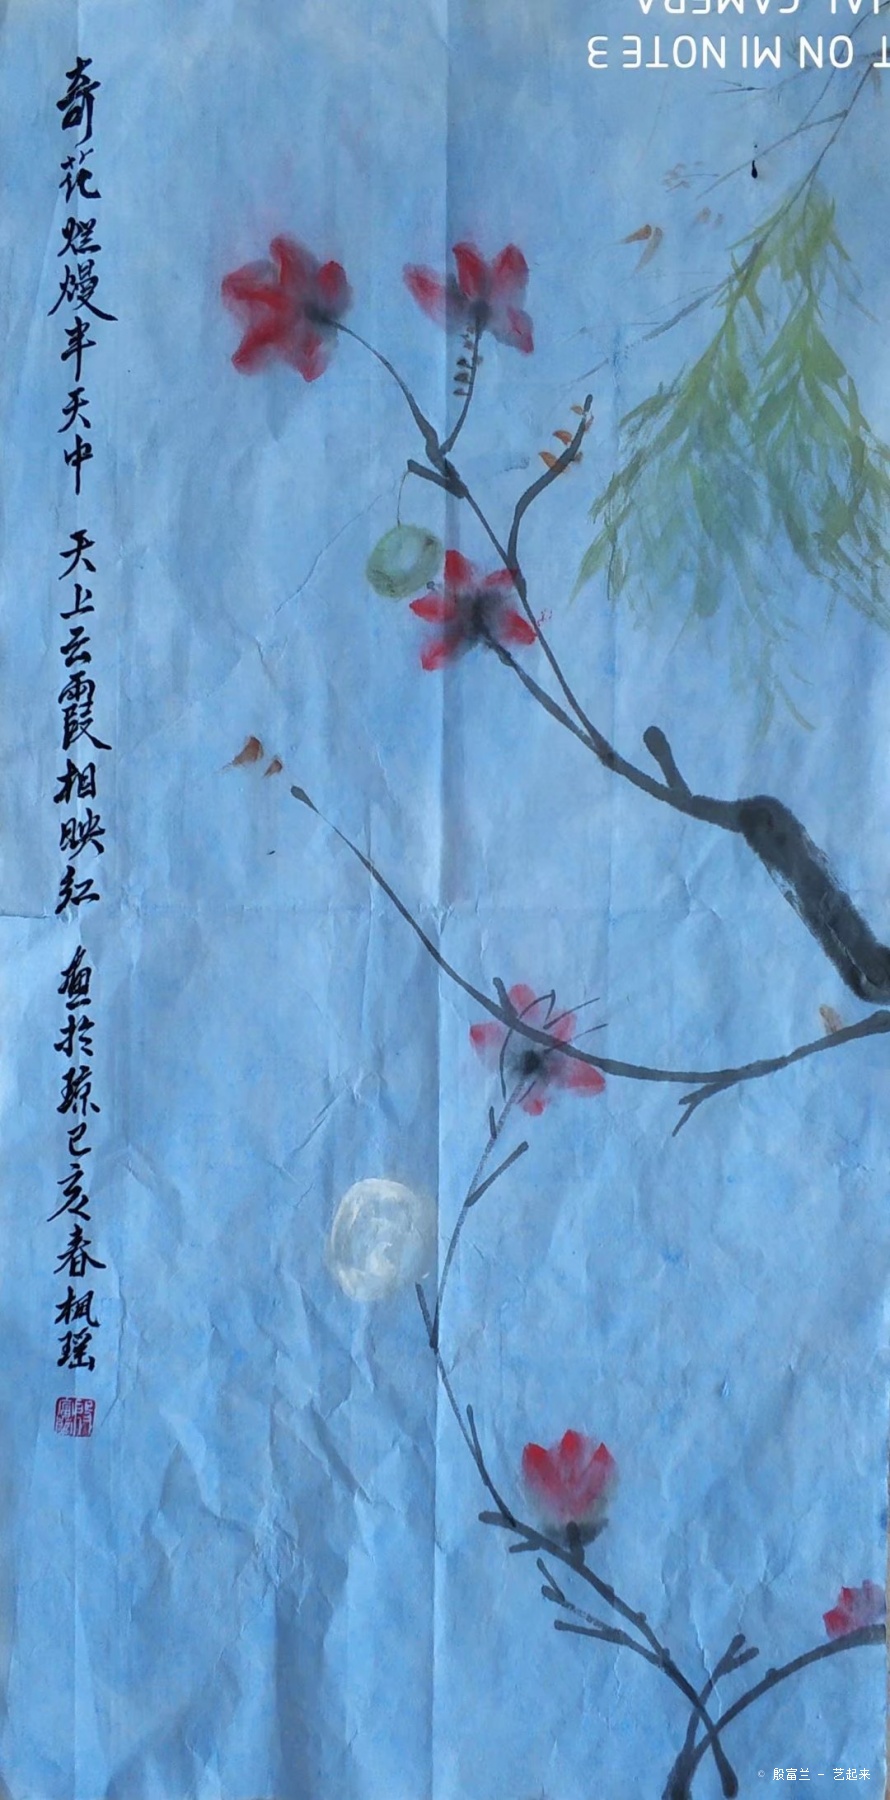 奇花烂熳半天中 天上云霞相映红 画於琼己亥春枫瑶
T ON MI NOTE 3
AL CAMERA
© 殷富兰 - 艺起来